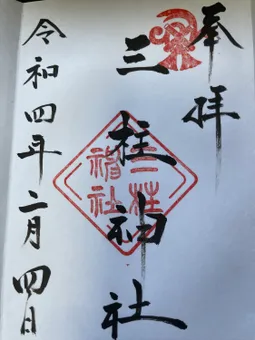 奉拝
三柱神社
三柱神社
令和四年二月四日